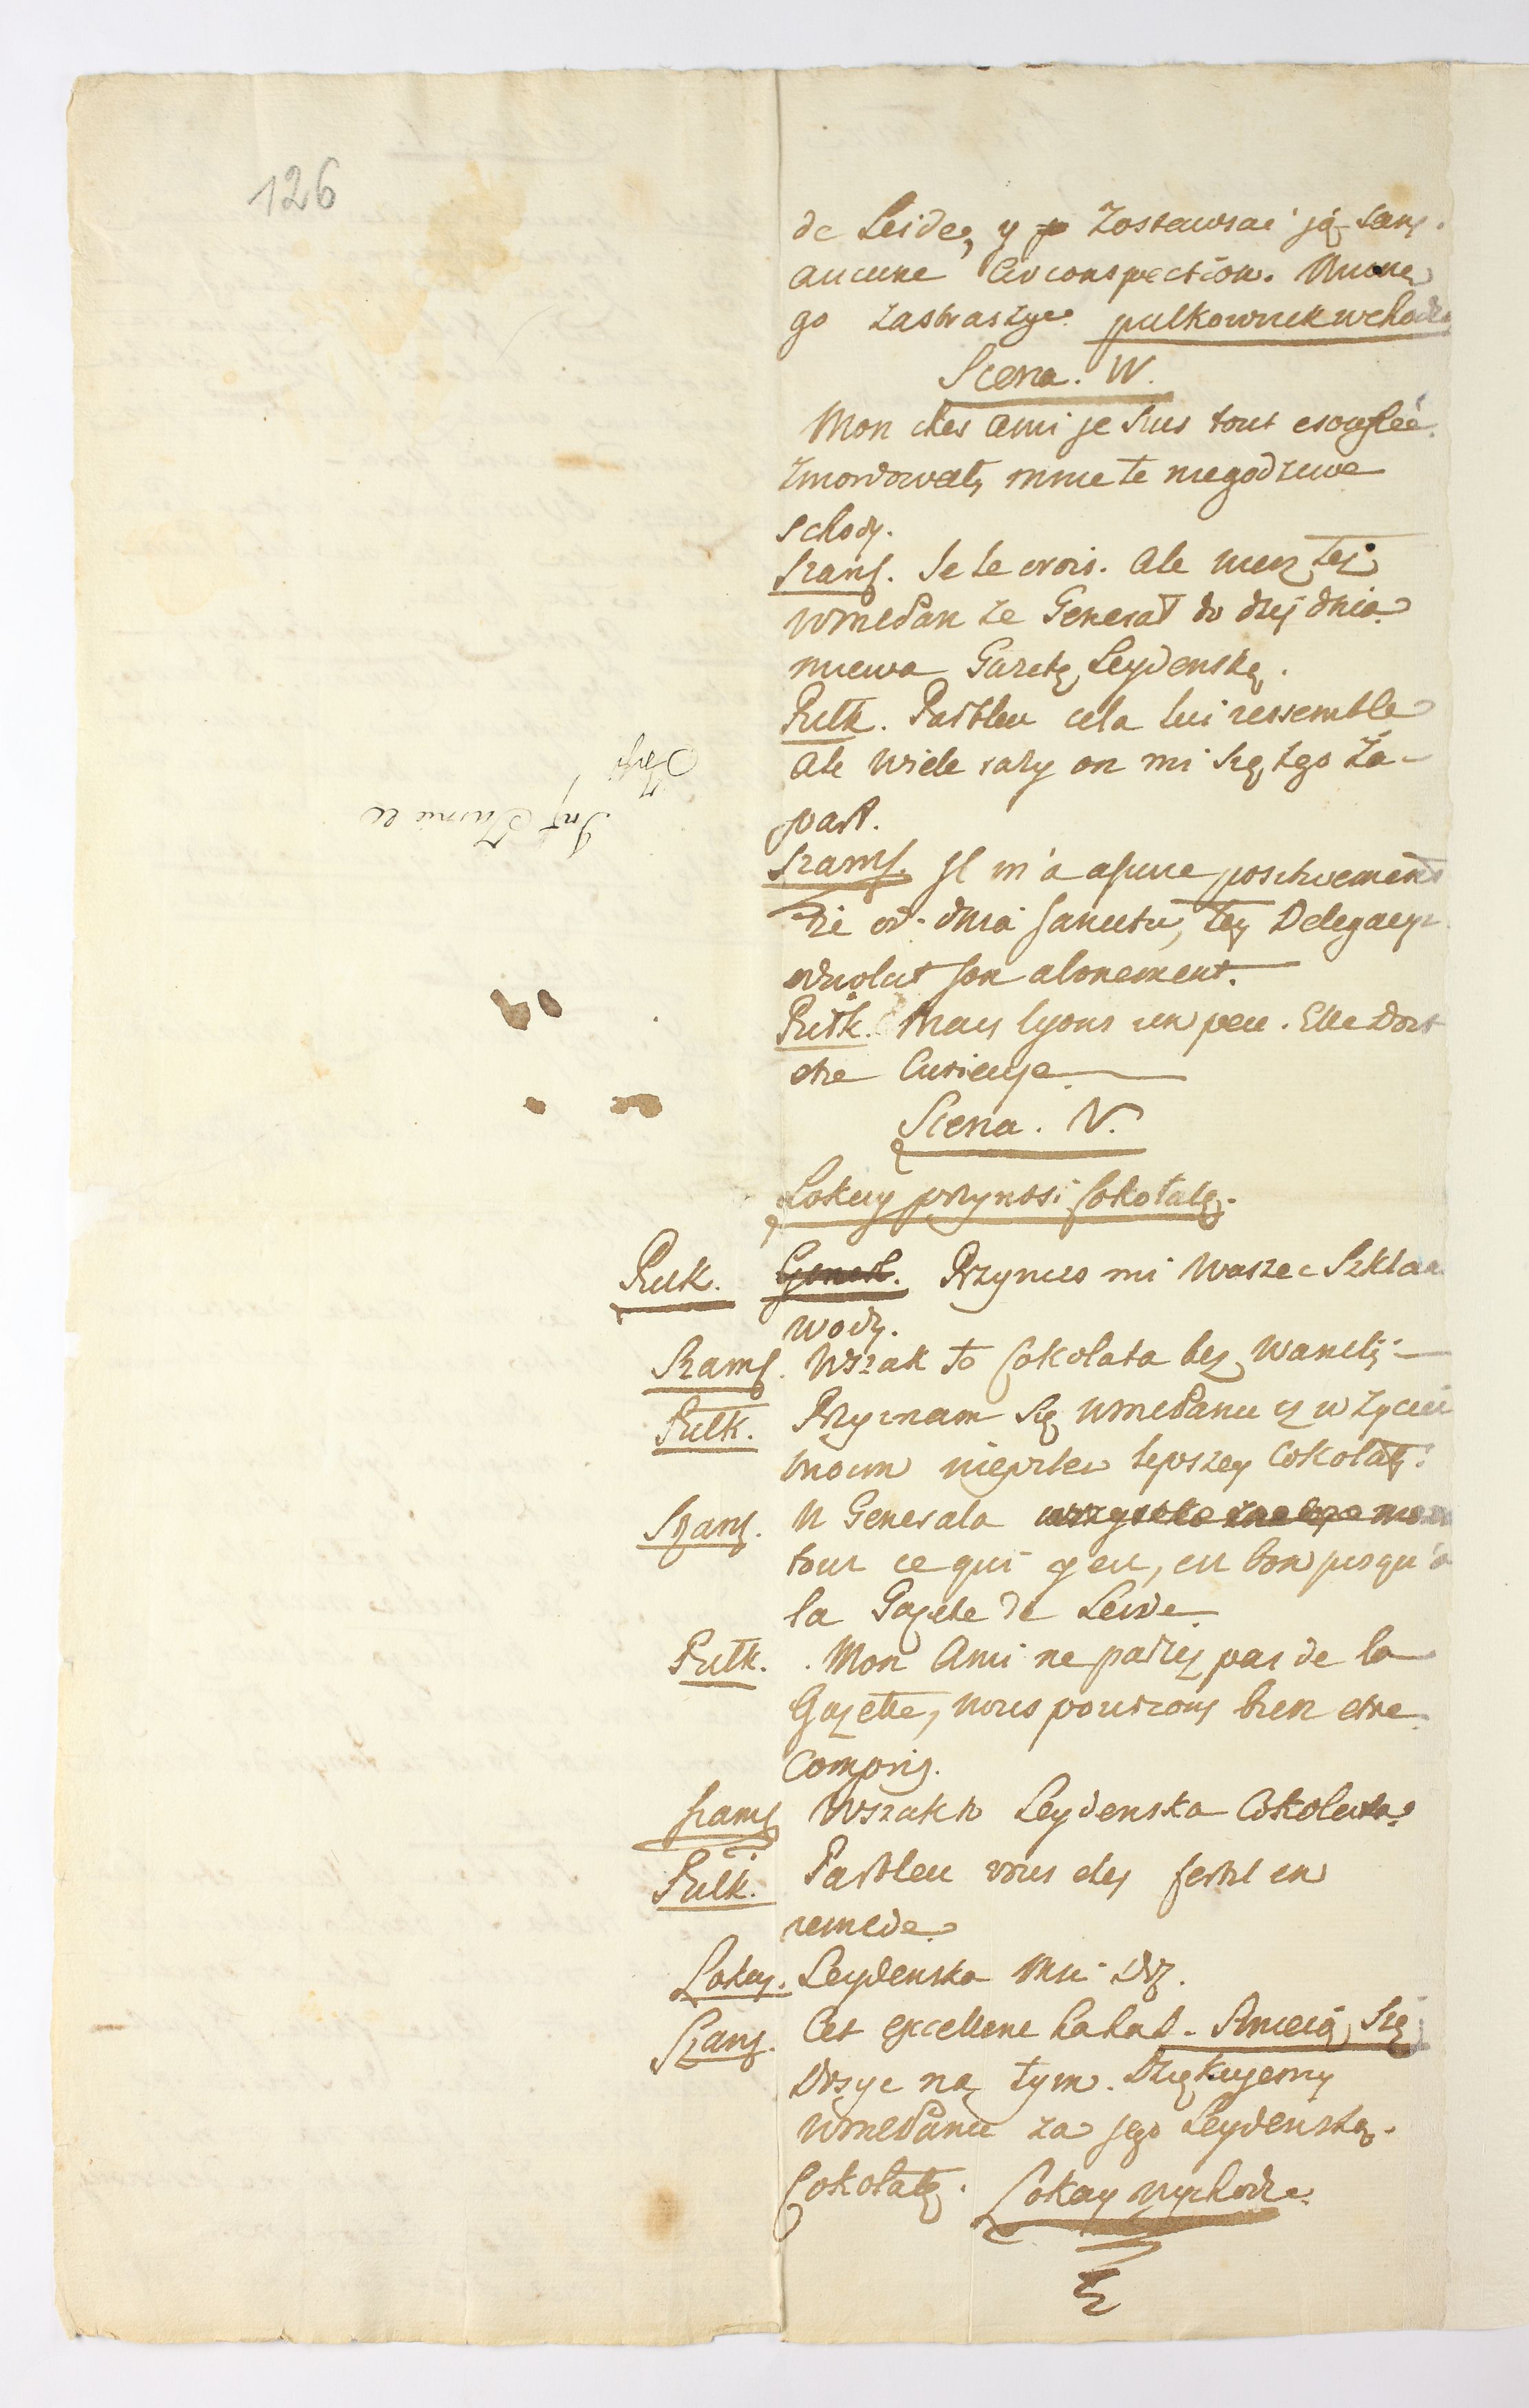 126
de Leide, y zostawiać ją sans
aucune Circonspection. Można
go zastraszyć. pulkownik wchodzi
Scena. IV.
Mon cher ami je suis tout esouflée.
Zmordowały mnie te niegodziwe
schody.
Szamb. Je le crois. Ale wiesz
WmcPan ze Generał do dziś dnia
miewa Gazetę Leydenską.
Pułk. Parbleu cela lui ressemble
Ale wiele razy on mi się tego za-
parł.
Szamb. Jl m'a assure positivement
że od dnia Sancitu, tey Delegacyi
son abonement.
Pułk. Mais lyons un peu. Elle doit
etre Curieuse
Scena. V.
Lokay przynosi Cokołatę.
Pułk. Generł. Przynies mi Waszec Szklan
wody.
Szamb. Wszak to Cokolata bez Wanelij
Pułk. Przyznam się WmcPanu iz w życiu
moim niepiłem lepszey Cokolaty.
Szamb. U Generala wszystko
tout ce qui y est, est bon jusqu'a
la Gazete de Leide
Pułk. Mon Ami ne parlez pas de la
Gazette, nous pourrons bien etre
Compris.
Szamb Wszak to Leydenska Cokolata?
Pułk. Parbleu vous etes fertil en
remede
Lokay. Leydenska Msci Dz.
Szamb. Cet excellent hahah. Smieią się
Dosyc na tym. Dziękujemy
WmcPanu za jego Leydenską
Cokolatę. Lokay wychodzi.